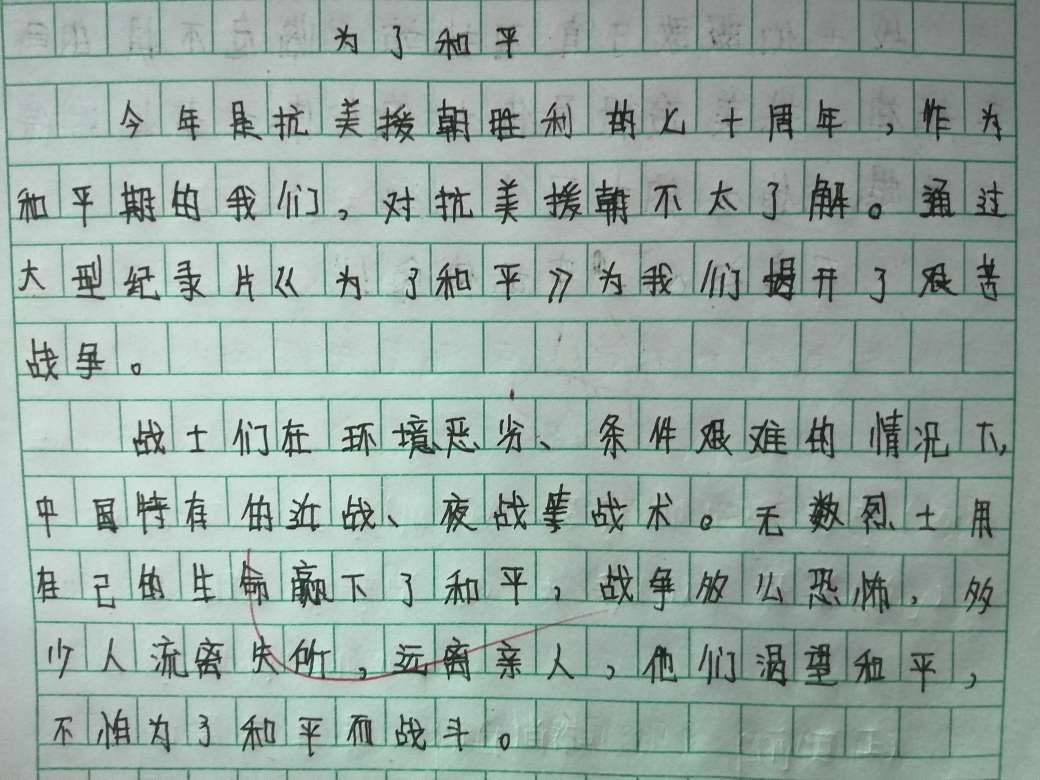 为了和平
今年是抗美援朝胜利的七十周年，作为
和平期的我们，对抗美援朝不太了解。通过
大型纪录片《为了和平》为我们揭开了艰苦
战争。
战士们在环境恶劣、条件艰难的情况下，
中国特有的近战、夜战等战术。无数烈士用
自己的生命赢下了和平，战争多么恐怖，多
少人流离失所，远离亲人，他们渴望和平，
不怕为了和平而战斗。